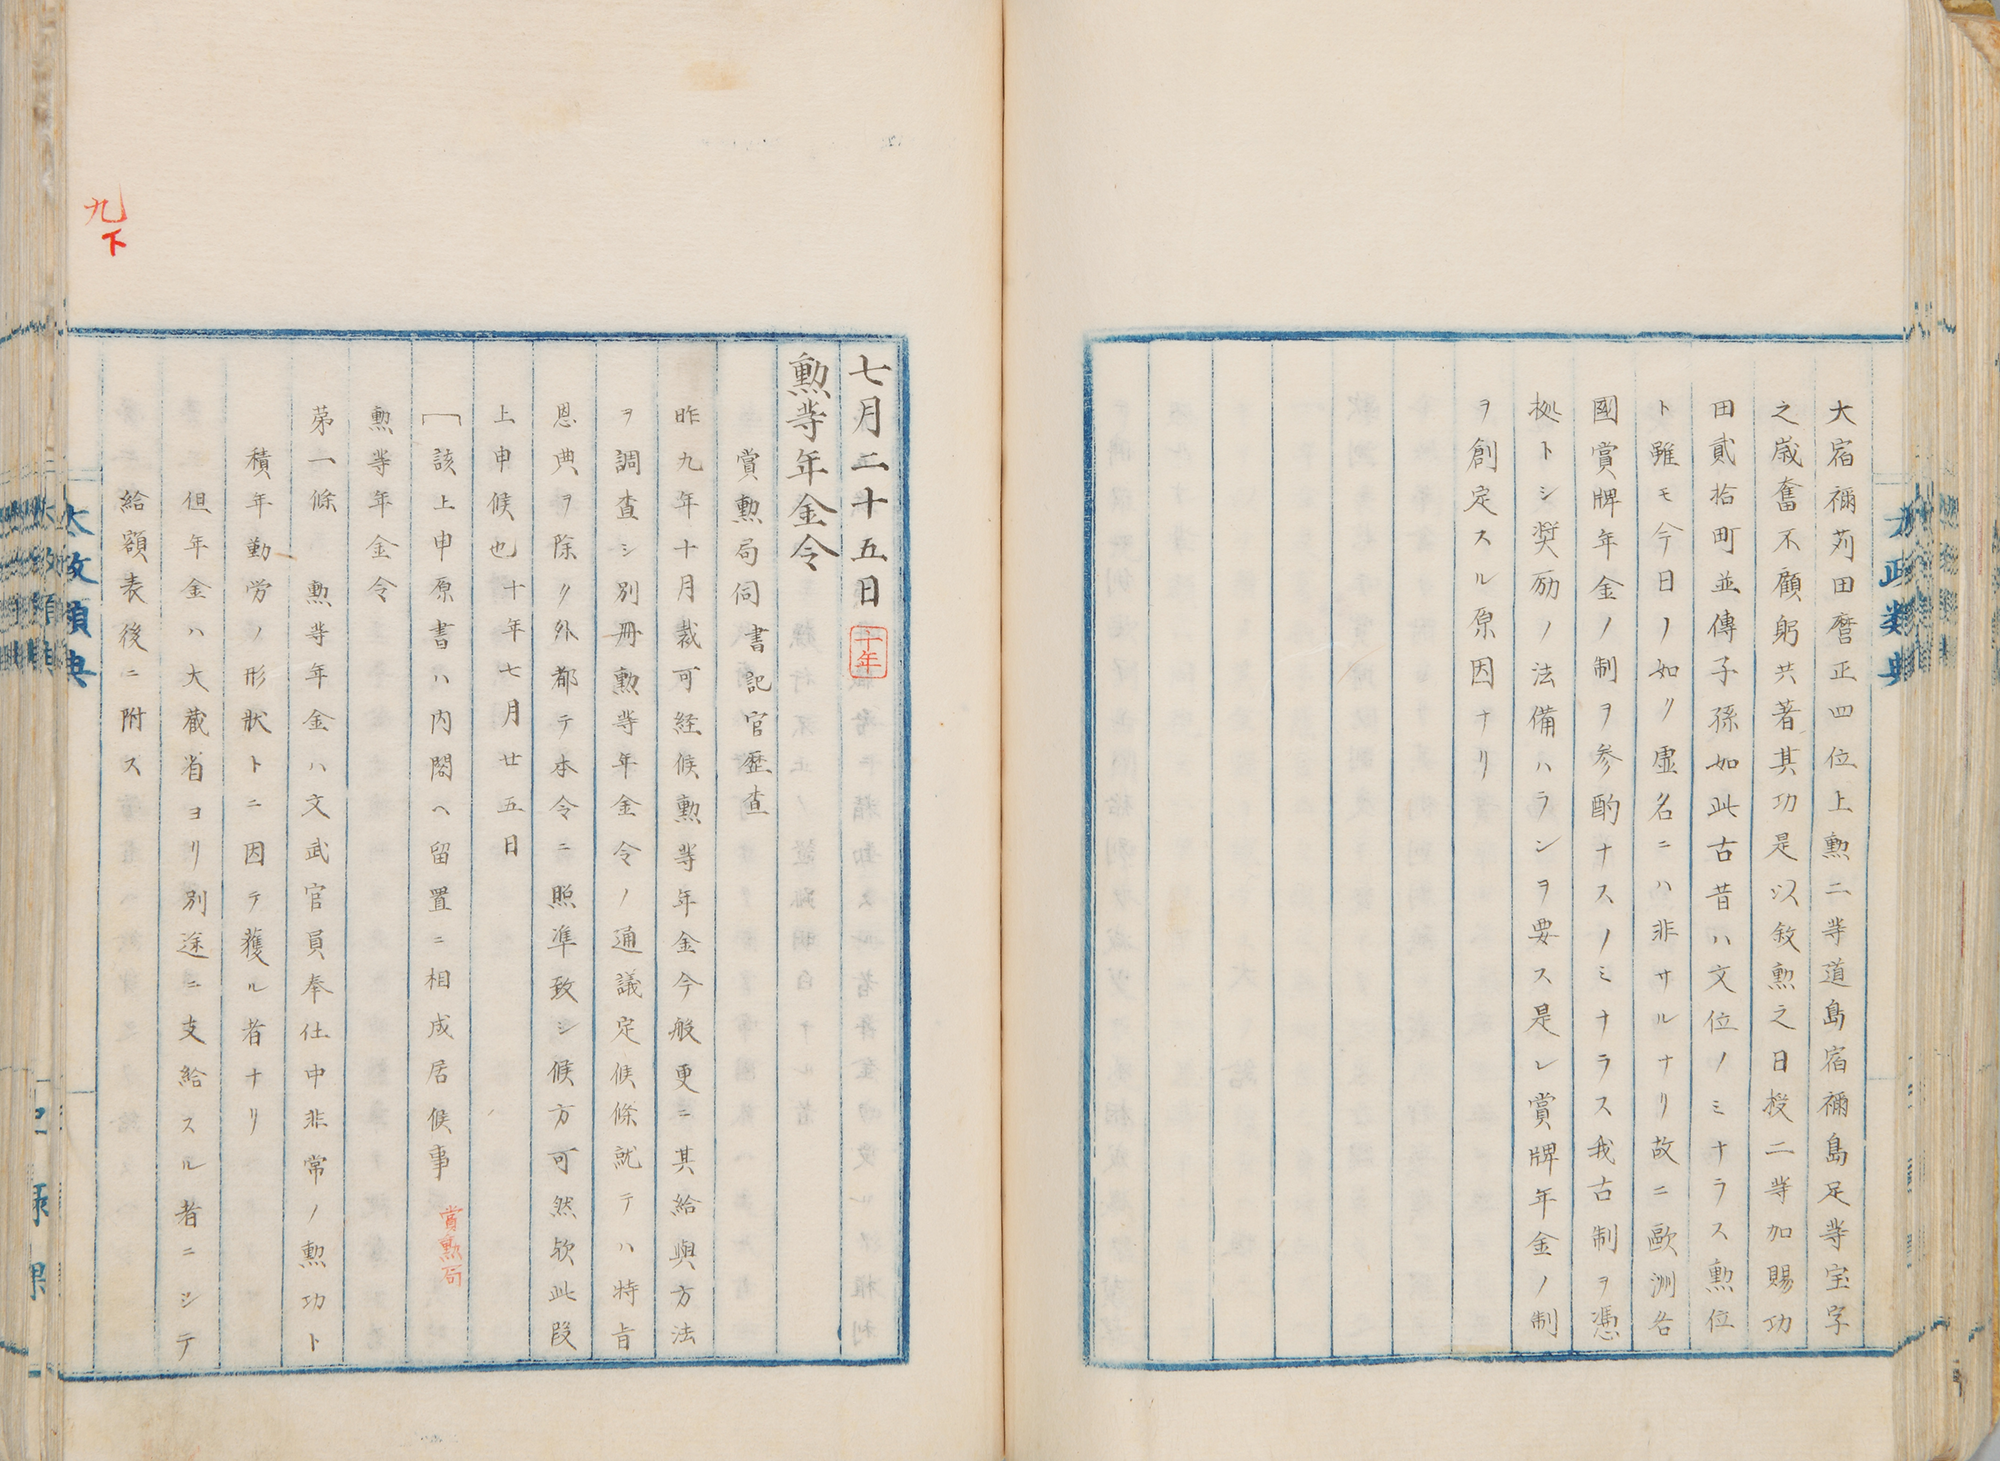 大宿禰苅田麿正四位上勲二等道島宿禰島足等宝字
之歳奮不顧躬共著其功是以敘勲之日授二等加賜功
田貳拾町並傳子孫如此古昔ハ文位ノミナラス勲位
ト雖モ今日ノ如ク虚名ニハ非サルナリ故ニ歐洲各
國賞牌年金ノ制ヲ参酌ナスノミナラス我古制ヲ憑
拠トシ奨励ノ法備ハランヲ要ス是レ賞牌年金ノ制
ヲ創定スル原因ナリ
太政類典
七月二十五日 十年
勲等年金令
賞勲局伺 書記官歴査
昨九年十月裁可経候勲等年金今般更ニ其給與方法
ヲ調査シ別冊勲等年金令ノ通議定候條就テハ特旨
恩典ヲ除ク外都テ本令ニ照準致シ候方可然欤此段
上申候也 十年七月廿五日
該上申原書ハ内閣ヘ留置ニ相成居候事 賞勲局
勲等年金令
苐一條 勲等年金ハ文武官員奉仕中非常ノ勲功ト
積年勤労ノ形狀トニ因テ獲ル者ナリ
但年金ハ大蔵省ヨリ別途ニ支給スル者ニシテ
給額表後ニ附ス
九
下
太政類典